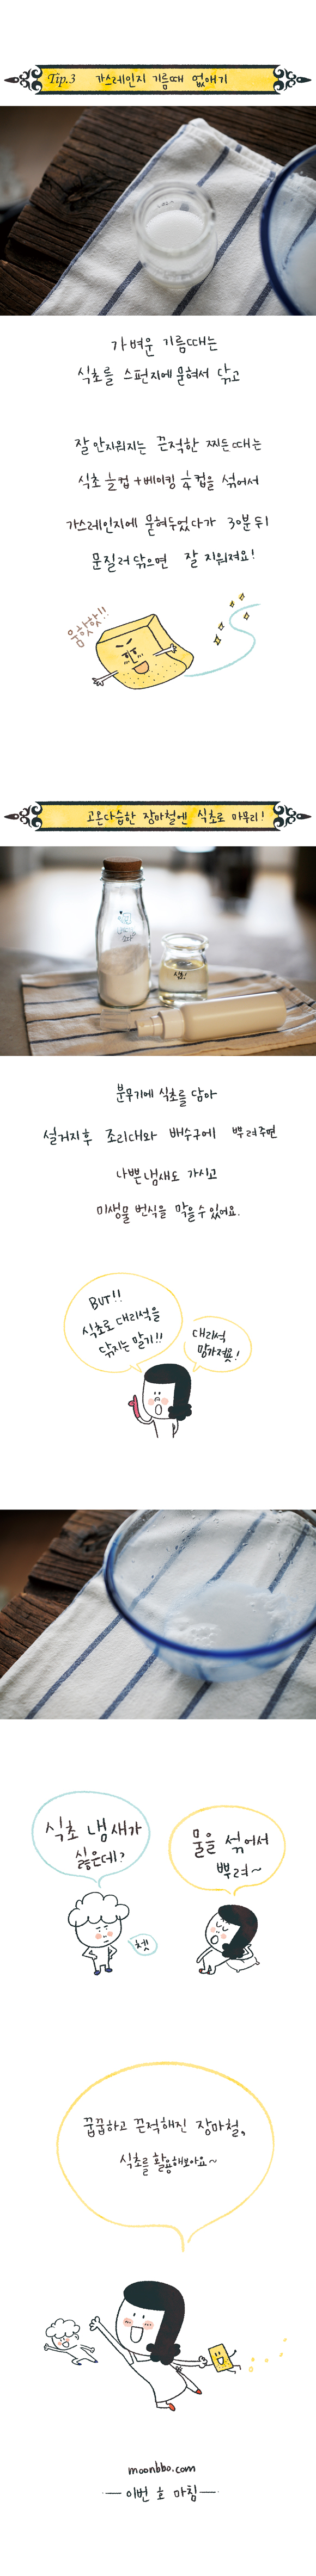 Tip.3 가스레인지 기름때 없애기
가벼운 기름때는
식초를 스펀지에 묻혀서 닦고
잘 안지워지는 끈적한 찌든때는
식초 1/2컵 + 베이킹 1/4컵을 섞어서
가스레인지에 묻혀두었다가 30분 뒤
문질러 닦으면 잘 지워져요!
움핫핫!!
고온다습한 장마철엔 식초로 마무리!
식초!
분무기에 식초를 담아
설거지 후 조리대와 배수구에 뿌려주면
나쁜 냄새도 가시고
미생물 번식을 막을 수 있어요.
BUT!!
식초로 대리석을
닦지는 말기!!
대리석
망가져욧!
식초 냄새가
싫은데?
물을 섞어서
뿌려~
쳇
꿉꿉하고 끈적해진 장마철,
식초를 활용해보아요~
moonbbo.com
이번 호 마침